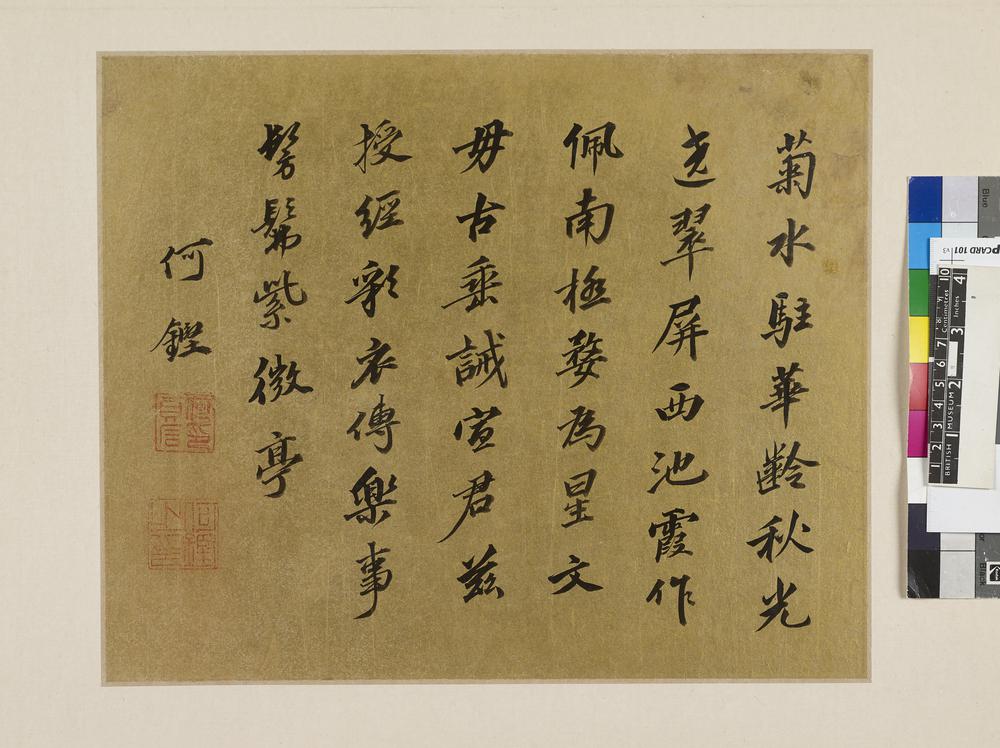 菊水駐華齡秋光
遶翠屏西池霞作
佩南極婺為星文
毋古垂誡宣君茲
授經彩衣傳樂事
髣髴紫微亭
何鏗
Blue
CARD 101
v3
BRITISH MUSEUM
Centimetres
Inches
1 2 3 4 5 6 7 8 9 10
1 2 3 4